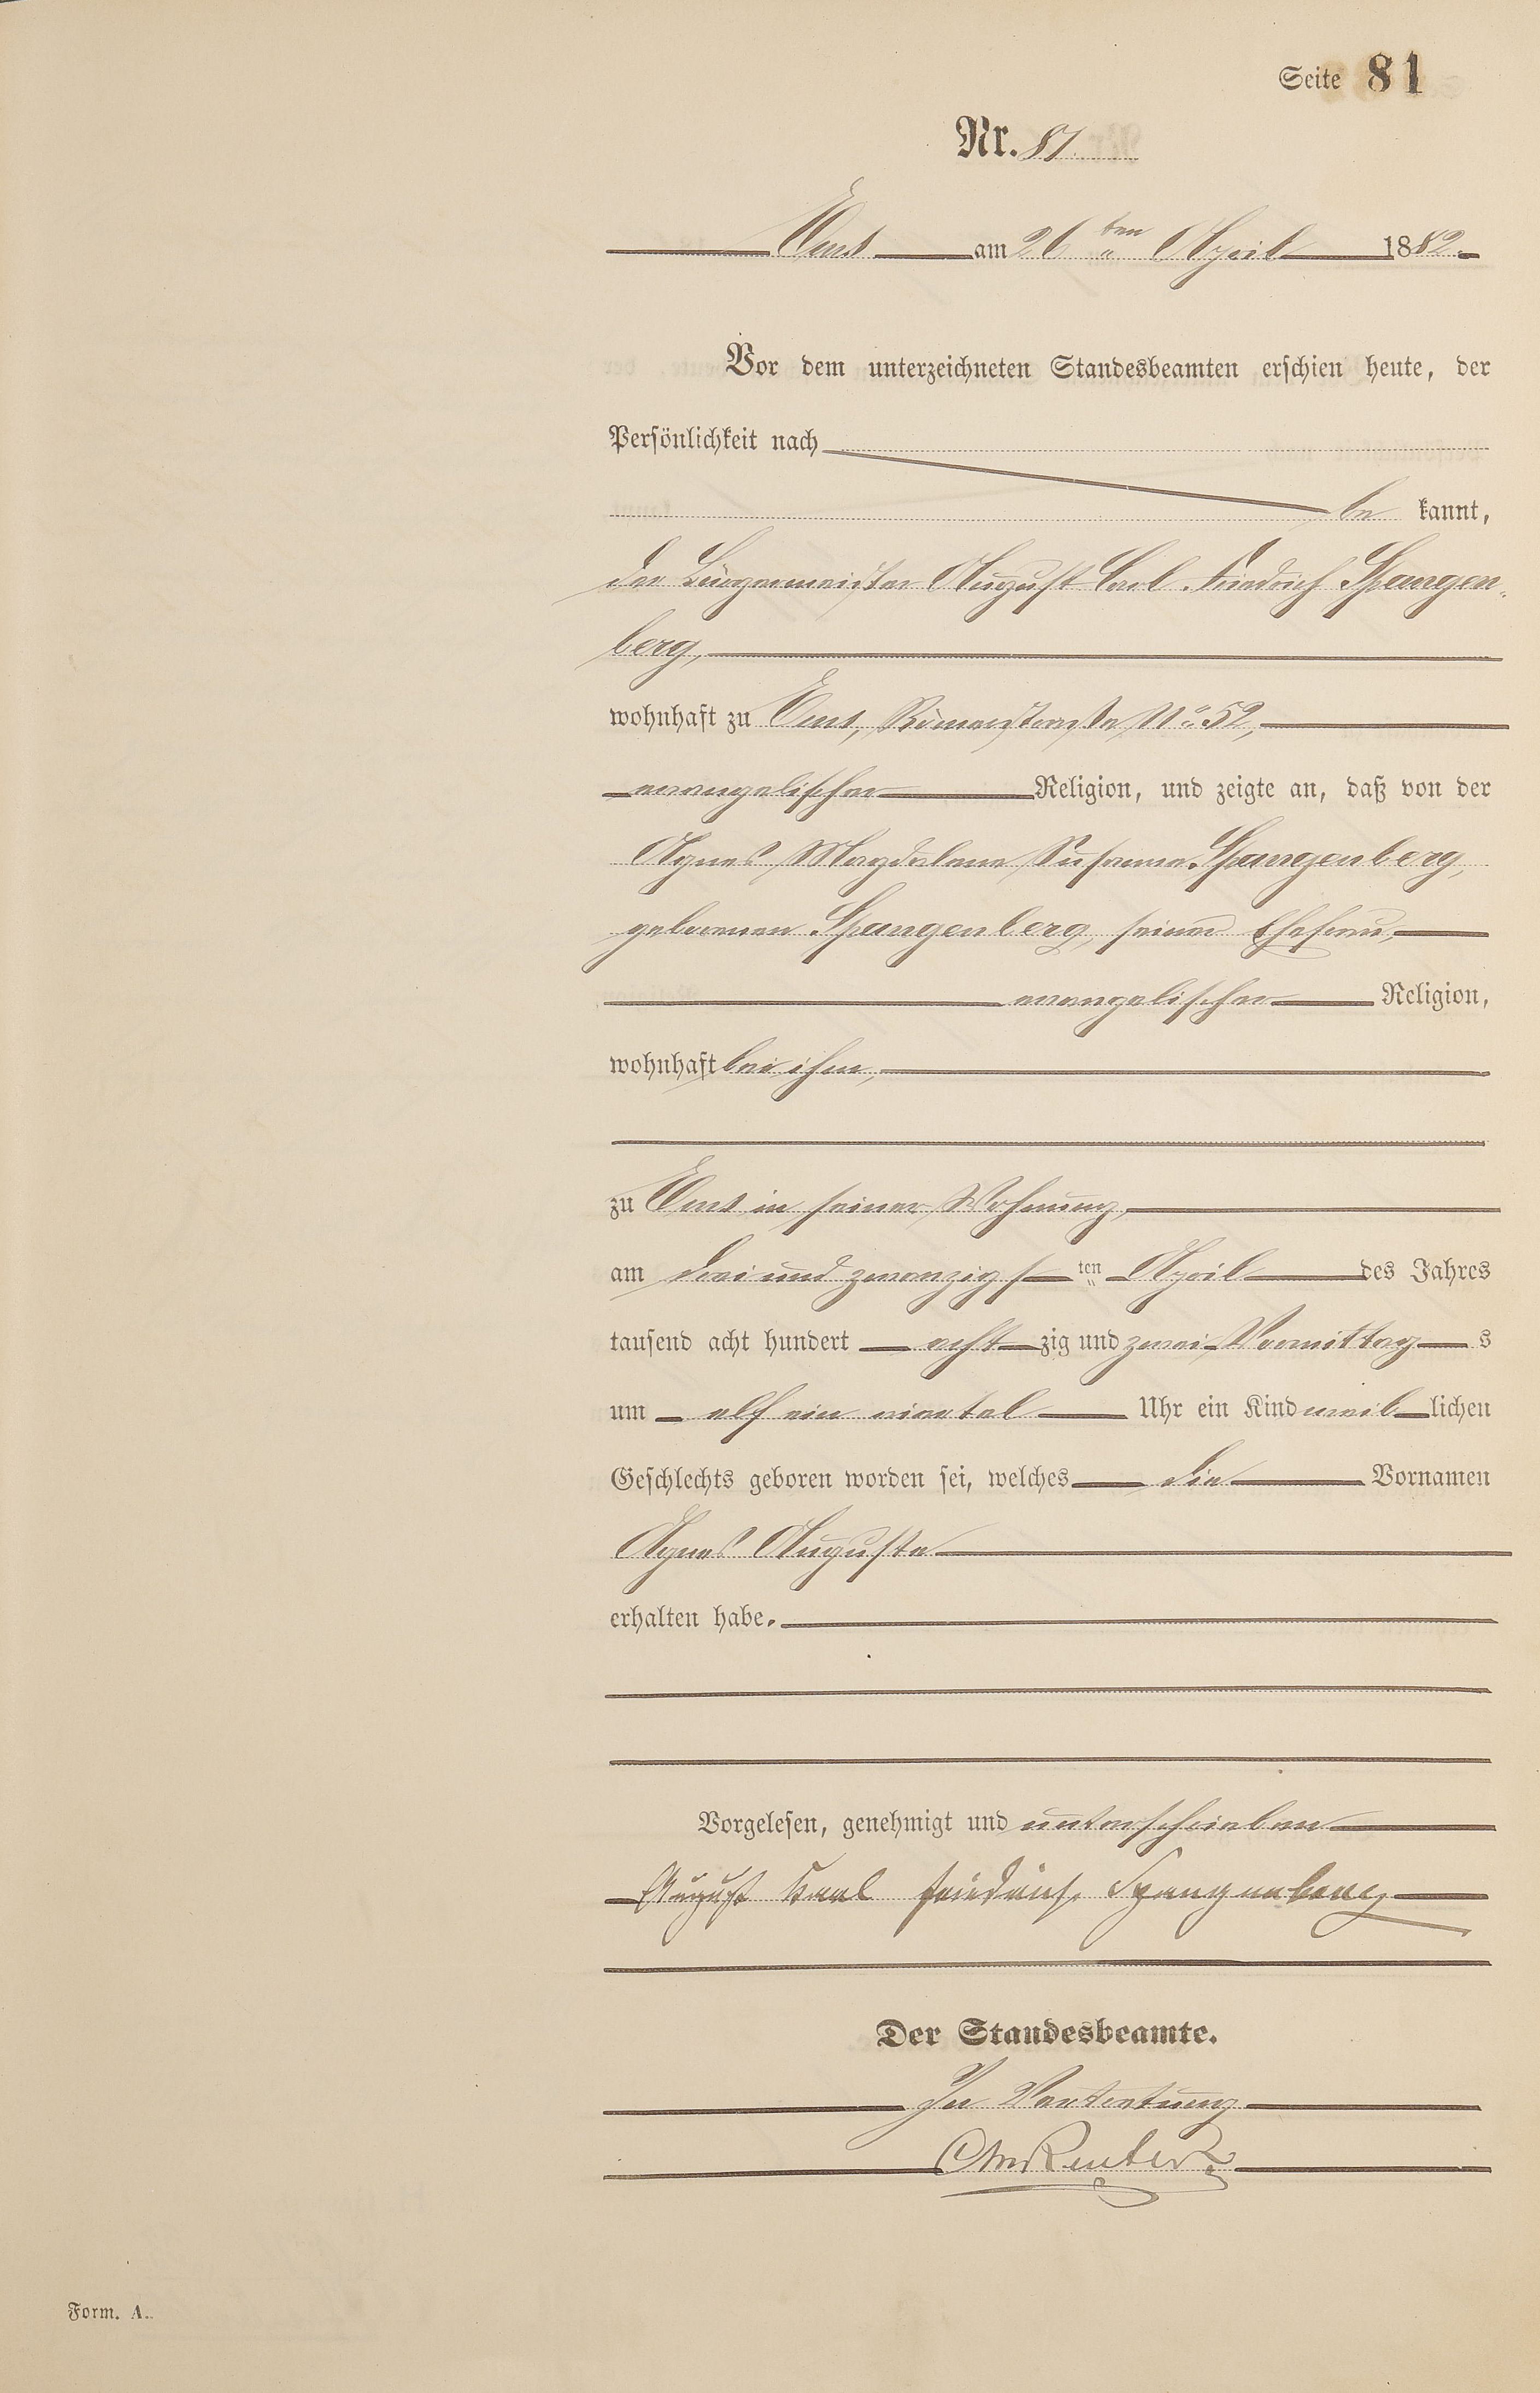 Seite 81
Nr. 81.
Ems am 26ten April 1882.
Vor dem unterzeichneten Standesbeamten erschien heute, der
Persönlichkeit nach
bekannt,
der Bürgermeister August Carl Friedrich Spangen-
berg,
wohnhaft zu Ems, Römerstraße No 52,
evangelischer Religion, und zeigte an, daß von der
Agnes Magdalena Susanna Spangenberg,
geborenen Spangenberg, seiner Ehefrau,
evangelischer Religion,
wohnhaft bei ihm,
zu Ems in seiner Wohnung,
am drei und zwanzigsten April des Jahres
tausend acht hundert achtzig und zwei Vormittags
um elf ein viertel Uhr ein Kind weiblichen
Geschlechts geboren worden sei, welches die Vornamen
Agnes Auguste
erhalten habe.
Vorgelesen, genehmigt und unterschrieben
August Karl Friedrich Spangenberg
Der Standesbeamte.
In Vertretung
Reuter
Form. A.